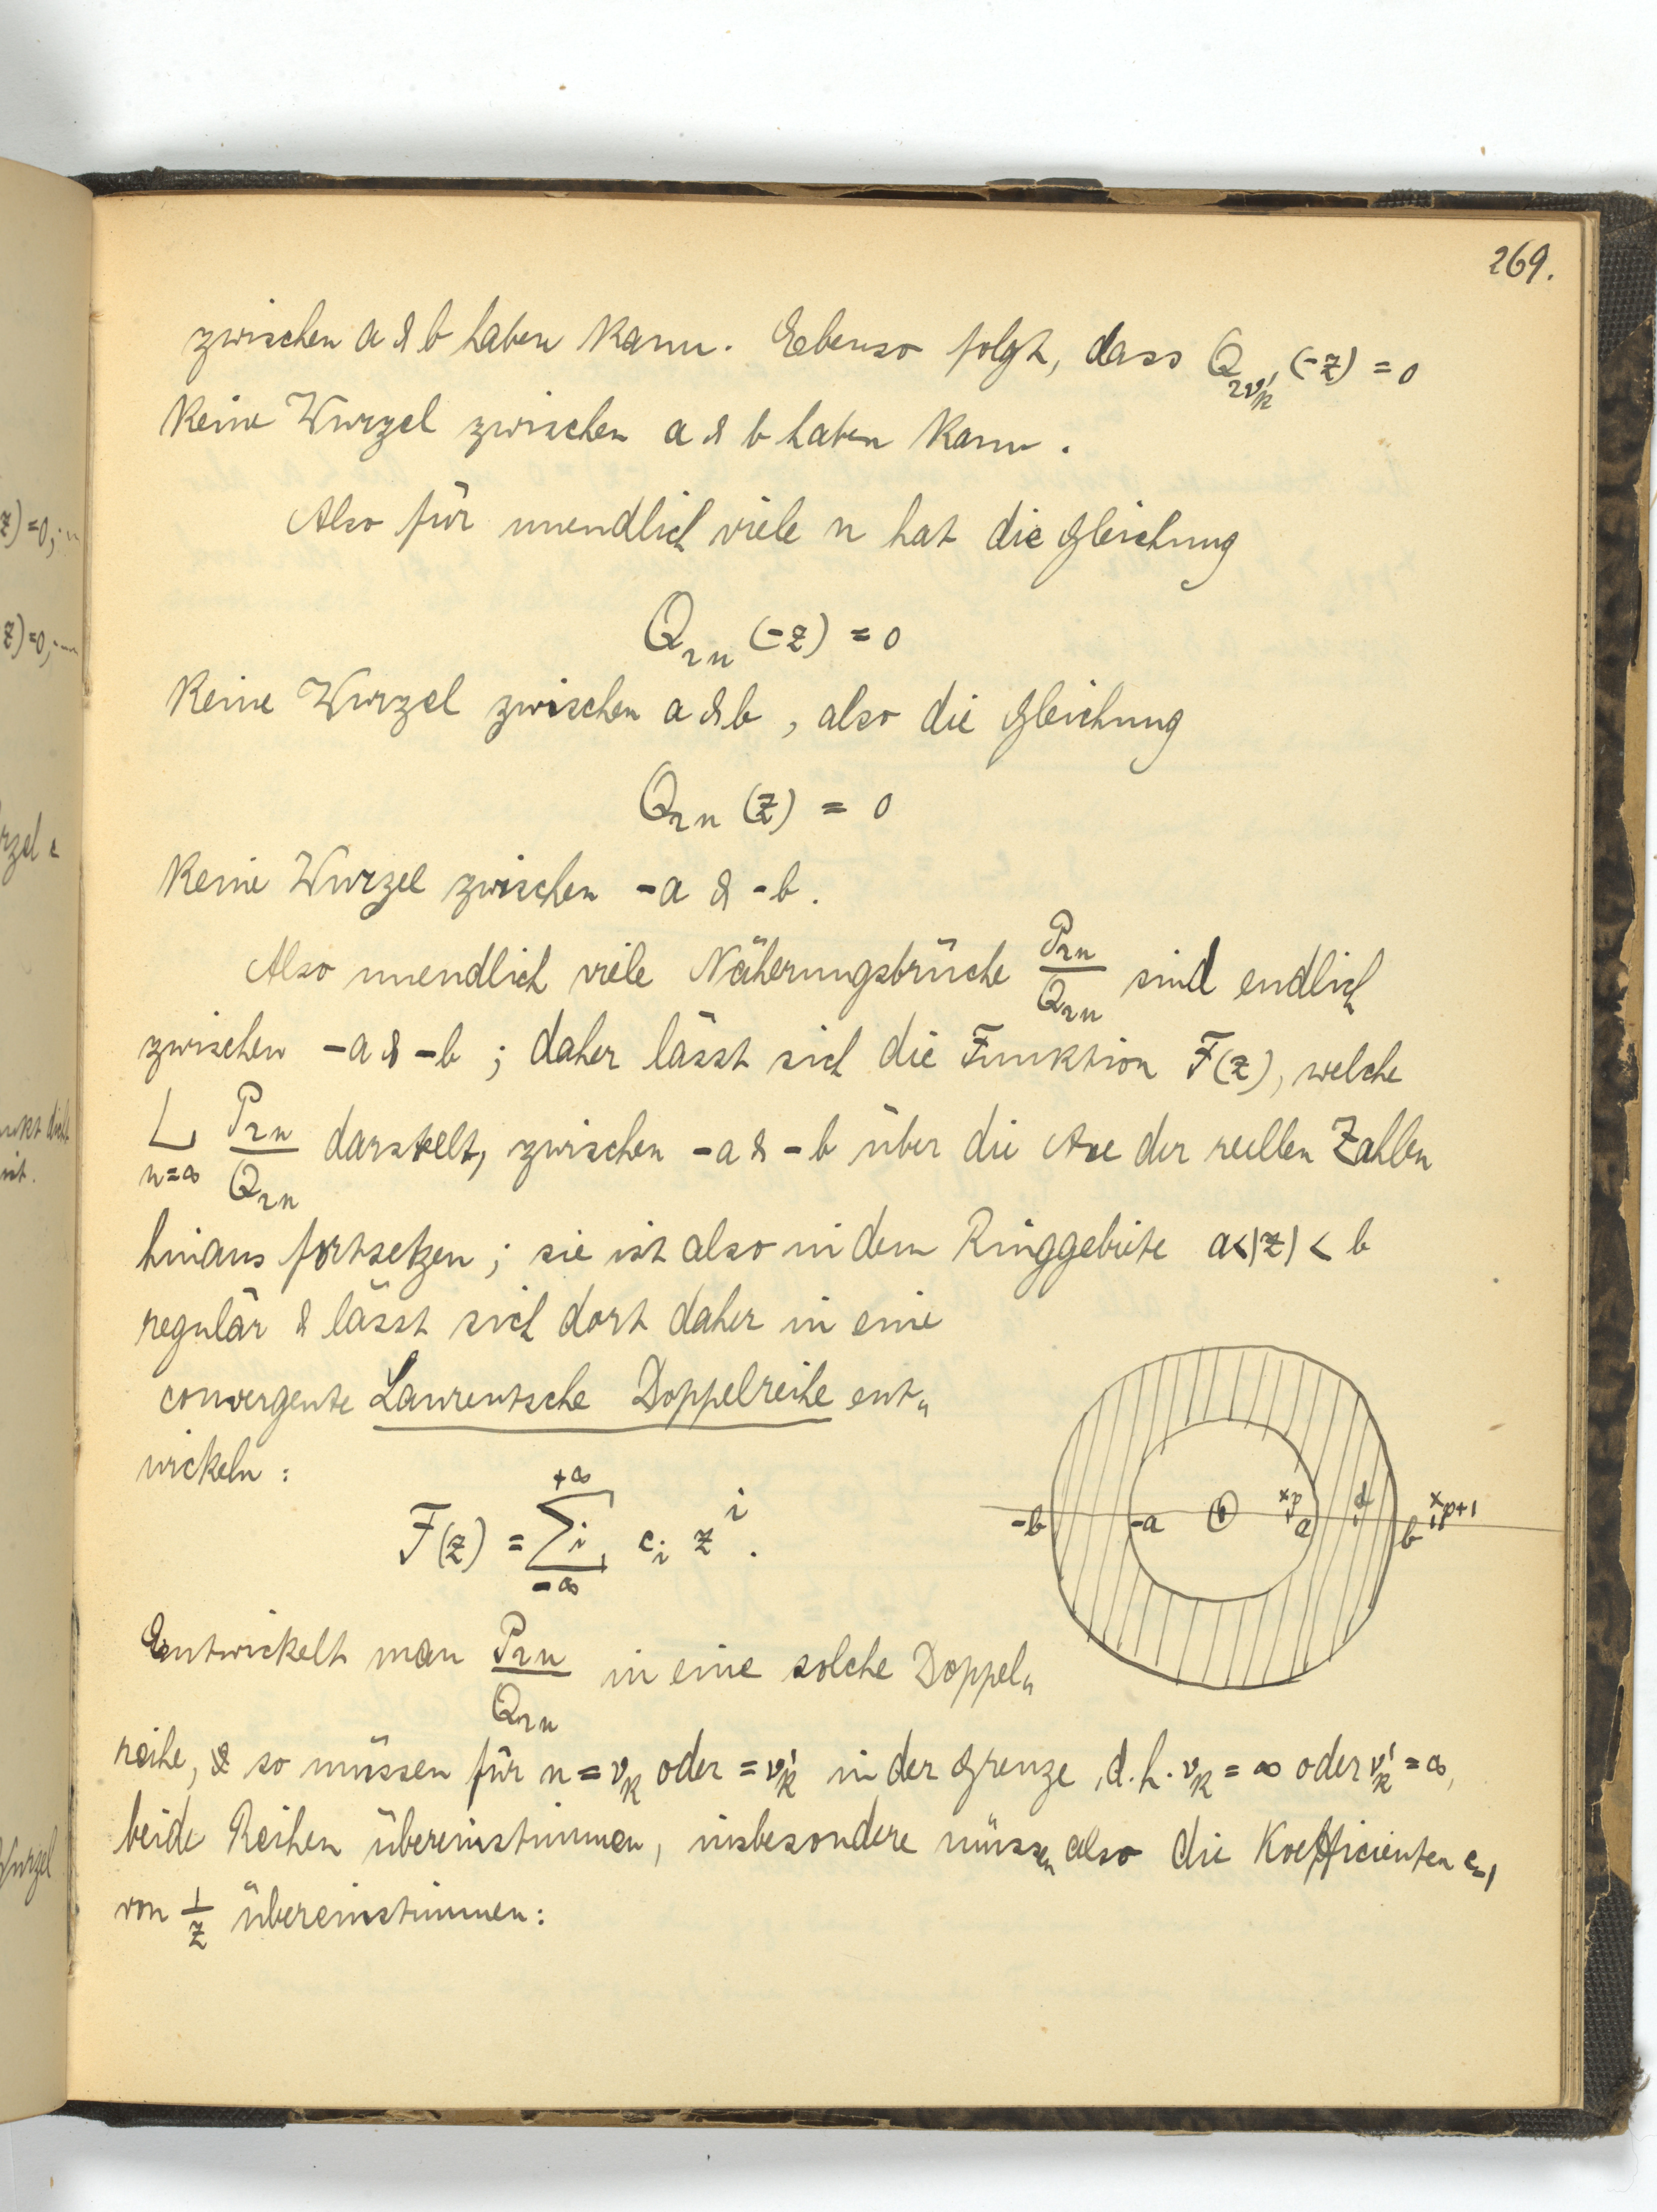 269.
zwischen a & b haben kann. Ebenso folgt, dass Q_{2ν'_k}(-z) = 0
keine Wurzel zwischen a & b haben kann.
Also für unendlich viele n hat die Gleichung
Q_{2n}(-z) = 0
keine Wurzel zwischen a & b, also die Gleichung
Q_{2n}(z) = 0
keine Wurzel zwischen -a & -b.
Also unendlich viele Näherungsbrüche P_{2n}/Q_{2n} sind endlich
zwischen -a & -b; daher lässt sich die Funktion F(z), welche
L_{n=∞} P_{2n}/Q_{2n} darstellt, zwischen -a & -b über die Axe der reellen Zahlen
hinaus fortsetzen; sie ist also in dem Ringgebiete a<|z|< b
regulär & lässt sich dort daher in eine
convergente Laurentsche Doppelreihe ent„
wickeln:
F(z) = ∑_{-∞}^{+∞} i, c_i z^i.
-b -a 0 x_p a d b x_{p+1}
Entwickelt man P_{2n}/Q_{2n} in eine solche Doppel„
reihe, & so müssen für n = ν_k oder = ν'_k in der Grenze, d.h. ν_k = ∞ oder ν'_k = ∞,
beide Reihen übereinstimmen, insbesondere müssen also die Koefficienten c_{-1}
von 1/z übereinstimmen:
z) = 0, ...
z) = 0, ...